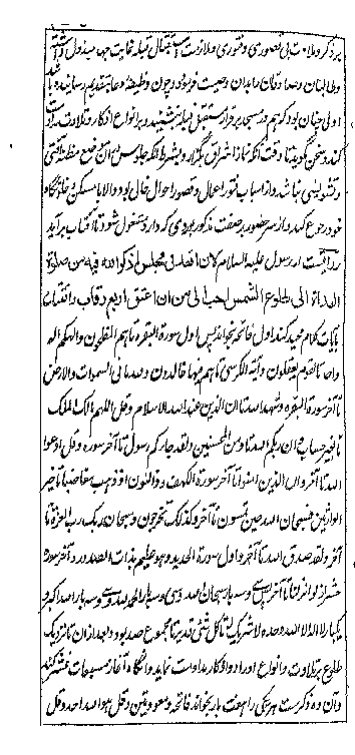 بر ذکر و ملازمت بی قصوری و فتوری و ملازمت استقبال قبله غایت جهد مبذول داشته
و طالبان و صادقان را بدان وصیت فرموده و چون وظیفه دعا بتقدیم رسانیده باشد
اولی چنان بود که هم در مسجد بر قرار مستقبل قبله بنشیند و بر انواع اذکار و تلاوت مداومت
کند و سخن نگوید تا وقت آنکه نماز اشراق بگزارد بشرط آنکه جلوس در آن موضع مظنه آفتی
و تشویشی نباشد و از اسباب فتور اعمال و قصور احوال خالی بود و الا با مسکن و خلوتگاه
خود رجوع کند و از سر حضور بر صفت مذکور بوردی که دارد مشغول شود تا آفتاب برآید
از رسول علیه السلام لان اقعد فی مجلس اذکر الله فیه من صلوة
الغداة الی طلوع الشمس احب الی من ان اعتق اربع رقاب و افتتاح
بآیات کلام مجید کند اول فاتحه بخواند پس اول سورة البقره تا هم المفلحون و الهکم اله
واحد تا لقوم یعقلون و آیة الکرسی تا هم فیها خالدون و لله ما فی السموات و الارض
تا آخر سورة البقره و شهد الله تا ان الدین عند الله الاسلام و قل اللهم مالک الملک
تا بغیر حساب و ان ربکم الله تا من المحسنین و لقد جاءکم رسول تا آخر سوره و قل ادعوا
الله تا آخر و ان الذین آمنوا تا آخر سورة الکهف و ذا النون اذ ذهب مغاضبا تا خیر
الوارثین فسبحان الله حین تمسون تا آخر و کذلک تخرجون و سبحان ربک رب العزة تا
آخر و لقد صدق الله تا آخر و اول سورة الحدید و هو علیم بذات الصدور و آخر سوره
حشر از لو انزلنا تا آخر پس سی و سه بار سبحان الله و سی و سه بار الحمد لله و سی و سه بار الله اکبر و
یکبار لا اله الا الله وحده لا شریک له تا کل شیء قدیر تا مجموع صد بود و بعد از آن تا نزدیک
طلوع بر تلاوت و انواع اوراد و اذکار مداومت نماید و آنگاه آغاز مسبعات عشر کند
و آن ده ذکر است هر یکی را هفت بار بخواند فاتحه و معوذتین و قل هو الله احد و قل